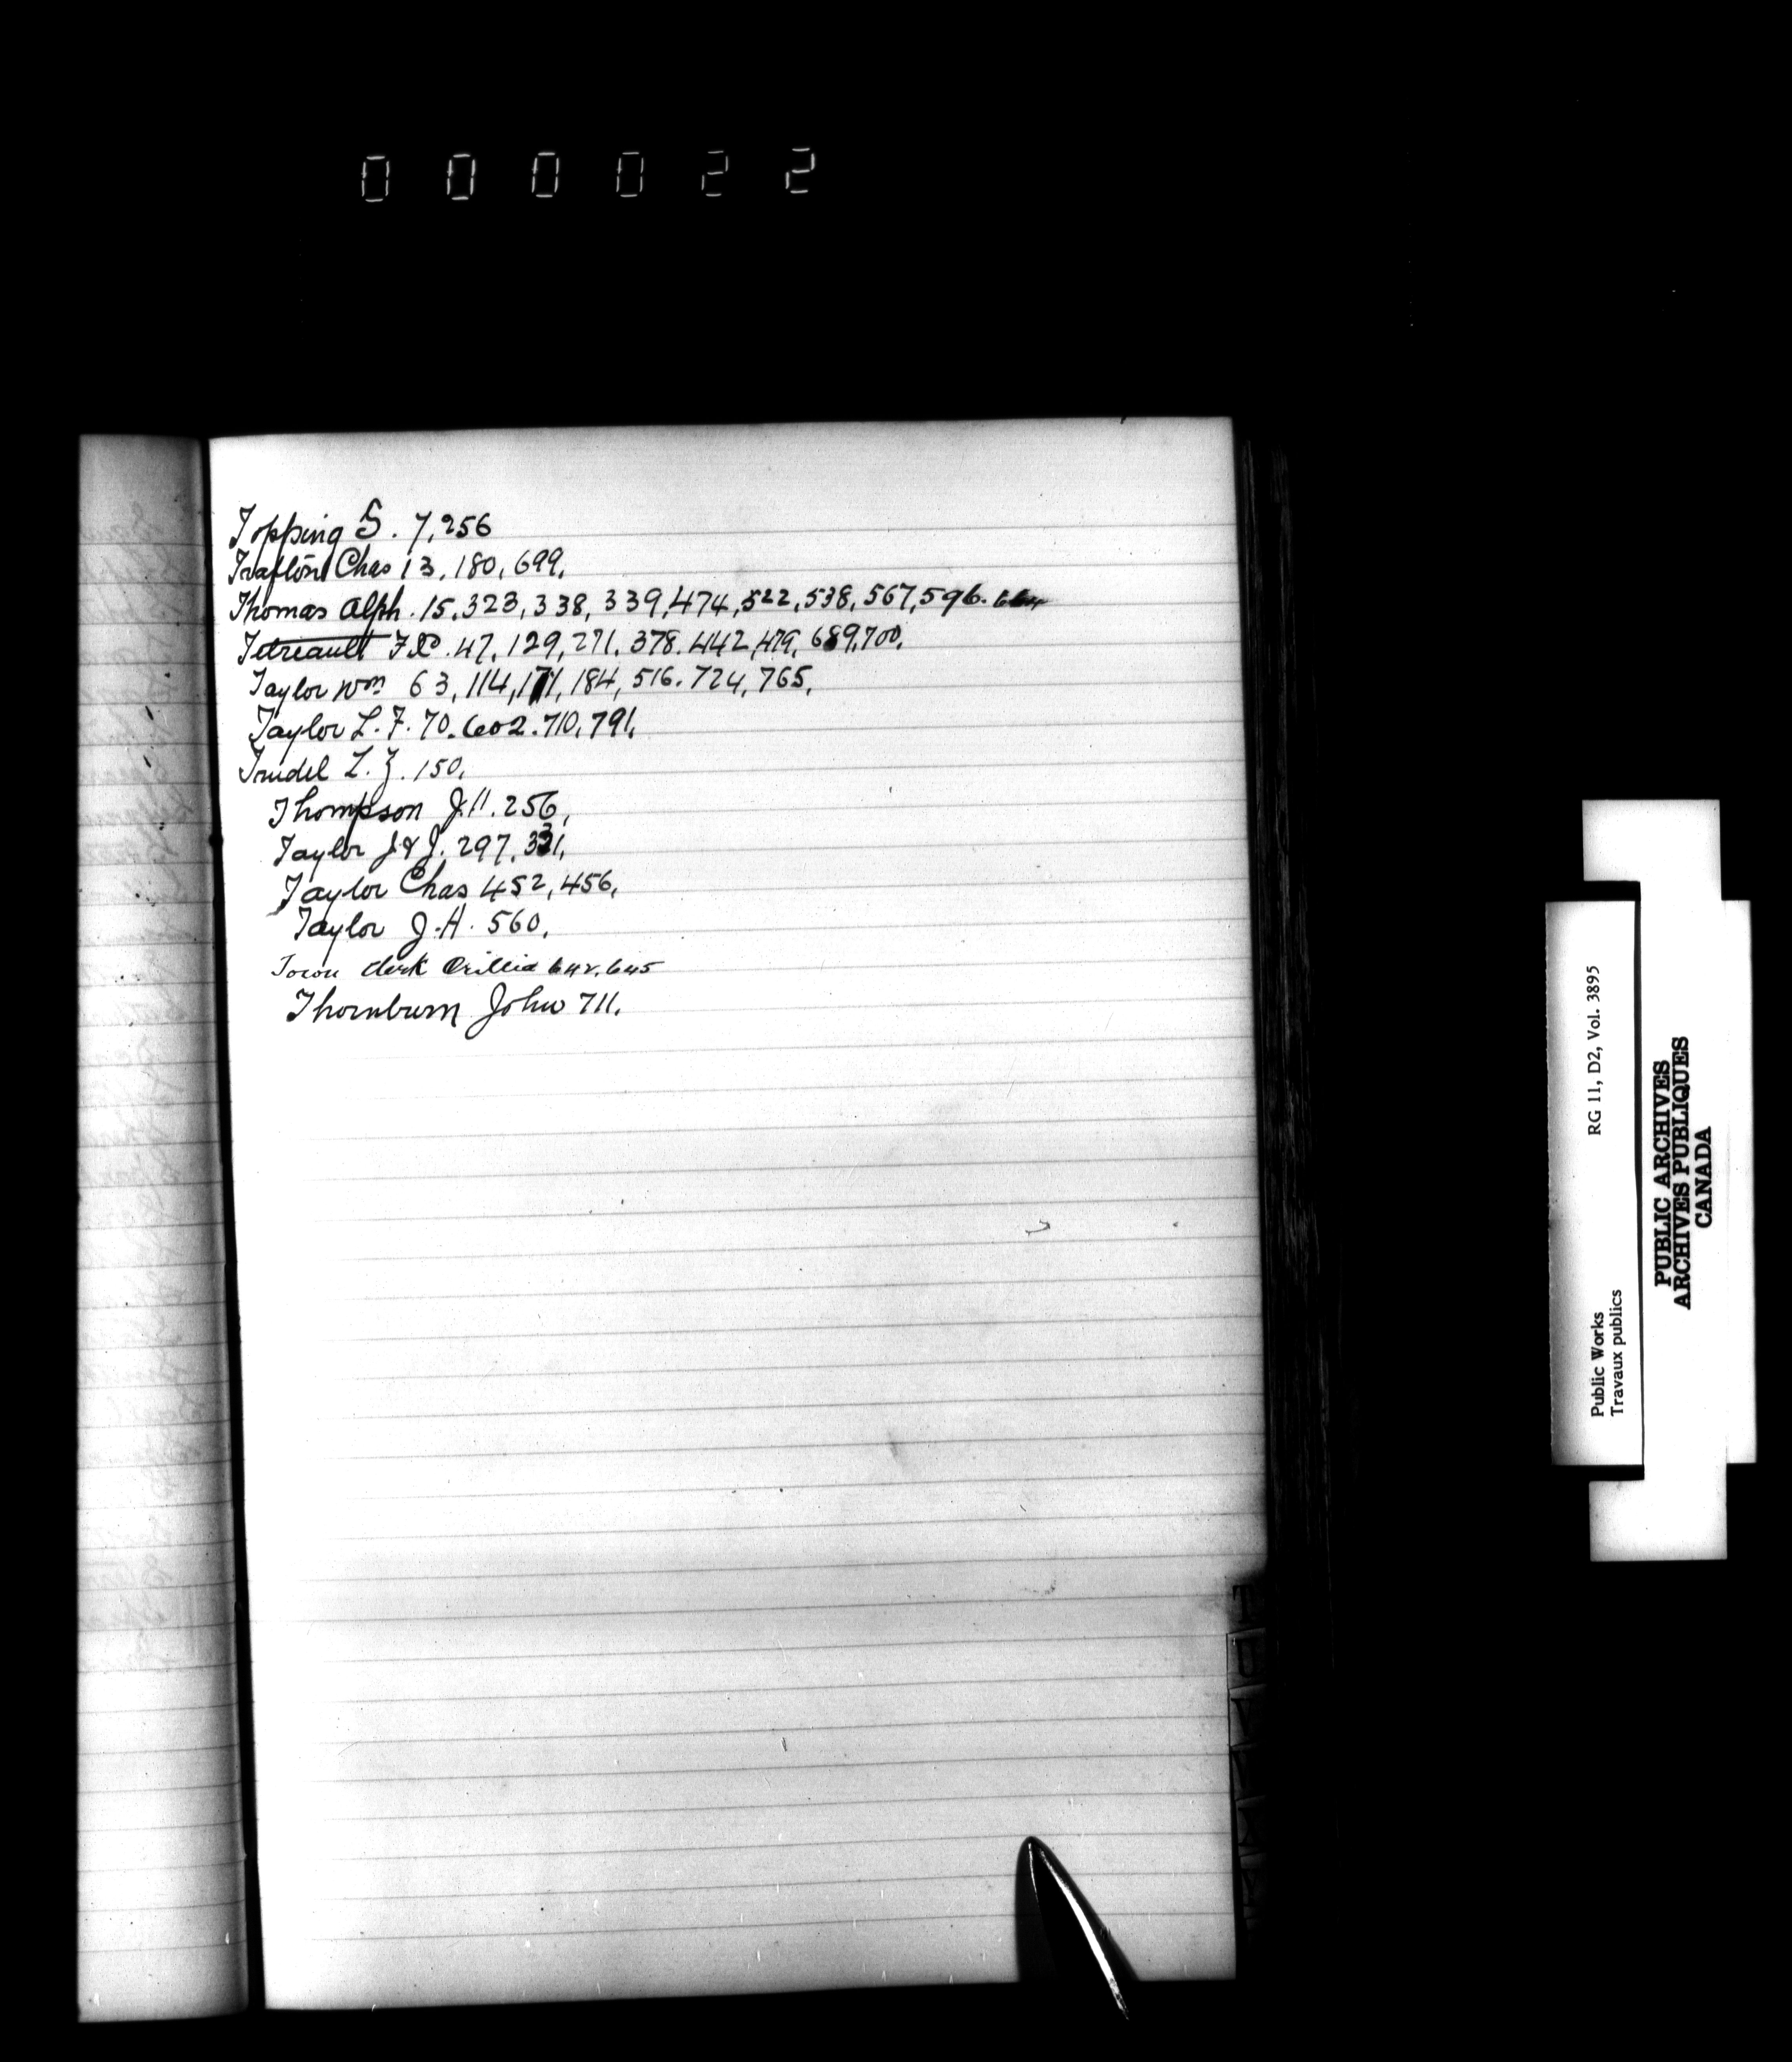 000022
Topping S. 7,256
Trafton Chas 13,180,699,
Thomas Alph. 15,323,338,339,474,522,538,567,596. 664
Tetreault F.X. 47,129,271,378.442,479,689,700,
Taylor Wm 63,114,171,184,516.724,765,
Taylor L.F. 70.602.710,791,
Trudel L.Z. 150,
Thompson J.H. 256,
Taylor J & J. 297,331,
Taylor Chas 452,456,
Taylor J.H. 560,
Town clerk Orillia 642.645
Thornburn John 711.
T
U
V
Public Works
Travaux publics
RG 11, D2, Vol. 3895
PUBLIC ARCHIVES
ARCHIVES PUBLIQUES
CANADA